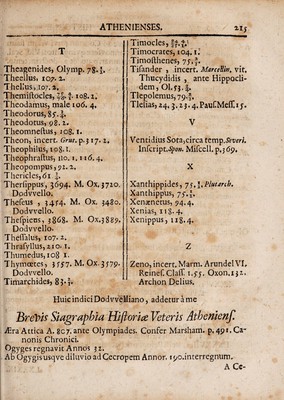 ATHENIENSES. 215
T
Theagenides, Olymp. 78.
Theellus, 107. 2.
Thellus, 107. 2.
Themistocles, 108. 2.
Theodamus, male 106. 4.
Theodorus, 85.
Theodotus, 98. 2.
Theomnestus, 108. 1.
Theon, incert. Grut. p. 317. 2.
Theophilus, 108. 1.
Theophrastus, 110. 1, 116. 4.
Theopompus, 92. 2.
Thericles, 61
Thersippus, 3694. M. Ox. 3720.
Dodvvello.
Theseus, 3454. M. Ox. 3480.
Dodvvello.
Thespieus, 3868. M. Ox. 3889.
Dodvvello.
Thessalus, 107. 2.
Thrasyllus, 210. 1.
Thumedus, 108 1.
Thymœtes, 3557. M. Ox. 3579.
Dodvvello.
Timarchides, 83.
Timocles,
Timocrates, 104. 1.
Timosthenes, 75.
Tisander, incert. Marcellin. vit.
Thucydidis, ante Hippocli-
dem, Ol. 53.
Tlepolemus, 79.
Tlesias, 24. 3. 23. 4. Paus. Mess. 15.
V
Ventidius Sota, circa temp. Severi.
Inscript. Spon. Miscell. p. 369.
X
Xanthippides, 75. Plutarch.
Xanthippus, 75.
Xenænetus, 94. 4.
Xenias, 118. 4.
Xenippus, 118. 4.
Z
Zeno, incert, Marm. Arundel VI.
Reines. Class. 1. 55. Oxon. 132.
Archon Delius.
Huic indici Dodvvelliano, addetur à me
Brevis Siagraphia Historiæ Veteris Atheniens.
Æra Attica A. 807. ante Olympiades. Confer Marsham. p. 491. Ca-
nonis Chronici.
Ogyges regnavit Annos 32.
Ab Ogygis usque diluvio ad Cecropem Annor. 190. interregnum.
A Ce-